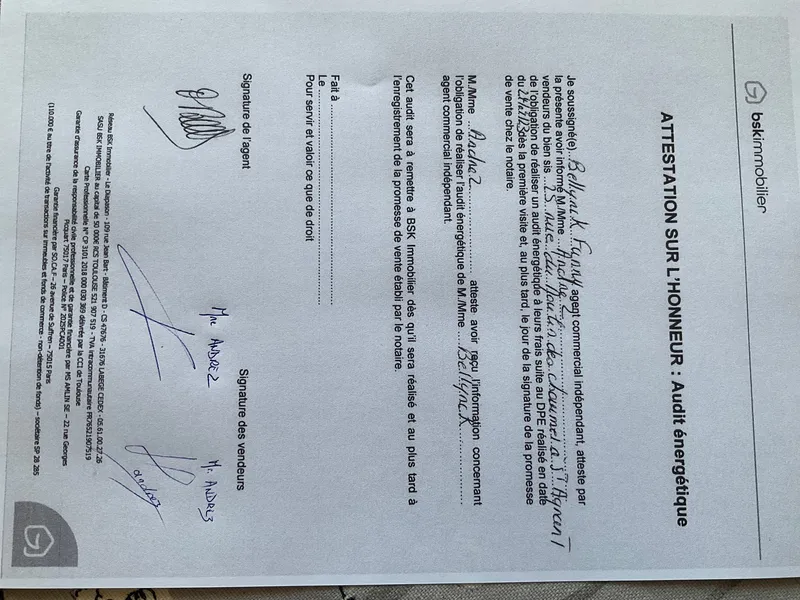 bskimmobilier
ATTESTATION SUR L'HONNEUR : Audit énergétique
Je soussigné(e) Bellynck Fanny agent commercial indépendant, atteste par
la présente avoir informé M./Mme Andrez
vendeurs du bien sis 25 rue du Moulin des chaumel a ST Agnant
de l'obligation de réaliser un audit énergétique à leurs frais suite au DPE réalisé en date
du dès la première visite et, au plus tard, le jour de la signature de la promesse
de vente chez le notaire.
M./Mme Andrez atteste avoir reçu l'information concernant
l'obligation de réaliser l'audit énergétique de M./Mme Bellynck
agent commercial indépendant.
Cet audit sera à remettre à BSK Immobilier dès qu'il sera réalisé et au plus tard à
l'enregistrement de la promesse de vente établi par le notaire.
Fait à
Le
Pour servir et valoir ce que de droit
Signature de l'agent Signature des vendeurs
Mme ANDREZ Mr ANDREZ
Réseau BSK Immobilier - Le Diapason - 109 rue Jean Bart - Bâtiment D - CS 47676 - 31676 LABEGE CEDEX - 05.61.00.27.26
SASU BSK IMMOBILIER au capital de 50 000€ RCS TOULOUSE 521 907 519 - TVA intracommunautaire FR76521907519
Carte Professionnelle N° CP 3101 2018 000 030 369 délivrée par la CCI de Toulouse
Garantie d'assurance de la responsabilité civile professionnelle et de garantie financière par MS AMLIN SE – 22 rue Georges
Picquart 75017 Paris – Police N° 2025PCA001
Garantie financière par SO.CA.F – 26 avenue de Suffren – 75015 Paris
(110.000 € au titre de l'activité de transactions sur immeubles et fonds de commerce - non-détention de fonds) – sociétaire SP 28 285